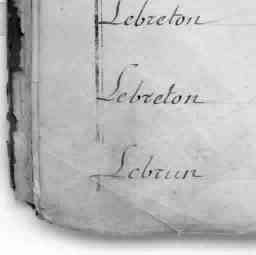 Lebreton
Lebreton
Lebrun